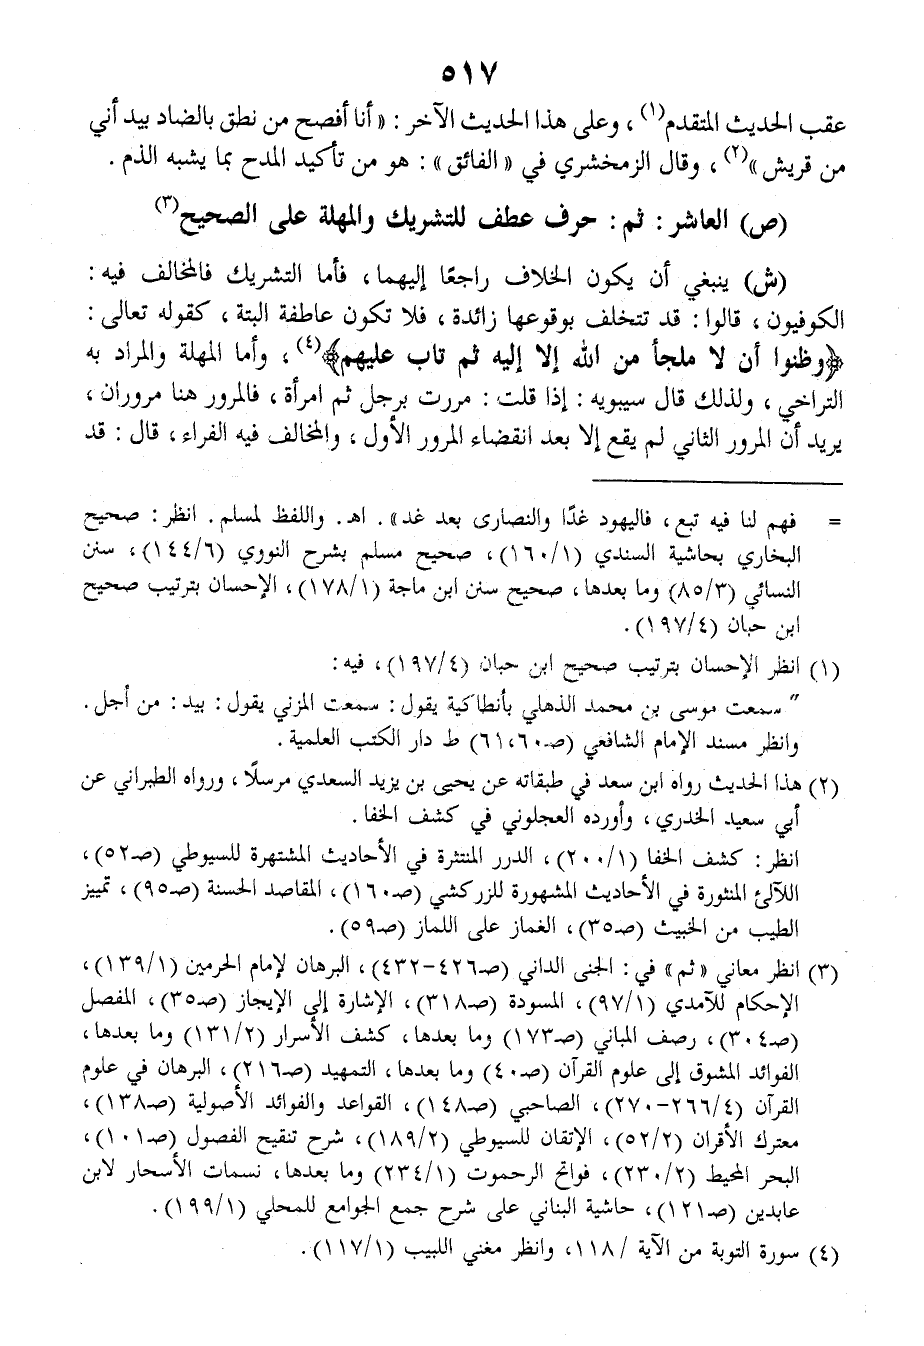 ٥١٧
عقب الحديث المتقدم(١) ، وعلى هذا الحديث الآخر : « أنا أفصح من نطق بالضاد بيد أني
من قريش »(٢) ، وقال الزمخشري في « الفائق » : هو من تأكيد المدح بما يشبه الذم .
(ص) العاشر : ثم : حرف عطف للتشريك والمهلة على الصحيح(٣)
(ش) ينبغي أن يكون الخلاف راجعًا إليهما ، فأما التشريك فالمخالف فيه :
الكوفيون ، قالوا : قد تتخلف بوقوعها زائدة ، فلا تكون عاطفة البتة ، كقوله تعالى :
﴿وظنوا أن لا ملجأ من الله إلا إليه ثم تاب عليهم﴾(٤) ، وأما المهلة والمراد به
التراخي ، ولذلك قال سيبويه : إذا قلت : مررت برجل ثم امرأة ، فالمرور هنا مروران ،
يريد أن المرور الثاني لم يقع إلا بعد انقضاء المرور الأول ، والمخالف فيه الفراء ، قال : قد
= فهم لنا فيه تبع ، فاليهود غدًا والنصارى بعد غد » . اهـ . واللفظ لمسلم . انظر : صحيح
البخاري بحاشية السندي (١٦٠/١) ، صحيح مسلم بشرح النووي (١٤٤/٦) ، سنن
النسائي (٨٥/٣) وما بعدها ، صحيح سنن ابن ماجة (١٧٨/١) ، الإحسان بترتيب صحيح
ابن حبان (١٩٧/٤) .
(١) انظر الإحسان بترتيب صحيح ابن حبان (١٩٧/٤) ، فيه :
" سمعت موسى بن محمد الذهلي بأنطاكية يقول : سمعت المزني يقول : بيد : من أجل .
وانظر مسند الإمام الشافعي (صـ٦١،٦٠) ط دار الكتب العلمية .
(٢) هذا الحديث رواه ابن سعد في طبقاته عن يحيى بن يزيد السعدي مرسلًا ، ورواه الطبراني عن
أبي سعيد الخدري ، وأورده العجلوني في كشف الخفا .
انظر : كشف الخفا (٢٠٠/١) ، الدرر المنتثرة في الأحاديث المشتهرة للسيوطي (صـ٥٢) ،
اللآلئ المنثورة في الأحاديث المشهورة للزركشي (صـ١٦٠) ، المقاصد الحسنة (صـ٩٥) ، تمييز
الطيب من الخبيث (صـ٣٥) ، الغماز على اللماز (صـ٥٩) .
(٣) انظر معاني « ثم » في : الجنى الداني (صـ٤٢٦-٤٣٢) ، البرهان لإمام الحرمين (١٣٩/١) ،
الإحكام للآمدي (٩٧/١) ، المسودة (صـ٣١٨) ، الإشارة إلى الإيجاز (صـ٣٥) ، المفصل
(صـ٣٠٤) ، رصف المباني (صـ١٧٣) وما بعدها ، كشف الأسرار (١٣١/٢) وما بعدها ،
الفوائد المشوق إلى علوم القرآن (صـ٤٠) وما بعدها ، التمهيد (صـ٢١٦) ، البرهان في علوم
القرآن (٢٦٦/٤-٢٧٠) ، الصاحبي (صـ١٤٨) ، القواعد والفوائد الأصولية (صـ١٣٨) ،
معترك الأقران (٥٢/٢) ، الإتقان للسيوطي (١٨٩/٢) ، شرح تنقيح الفصول (صـ١٠١) ،
البحر المحيط (٢٣٠/٢) ، فواتح الرحموت (٢٣٤/١) وما بعدها ، نسمات الأسحار لابن
عابدين (صـ١٢١) ، حاشية البناني على شرح جمع الجوامع للمحلي (١٩٩/١) .
(٤) سورة التوبة من الآية /١١٨ ، وانظر مغني اللبيب (١١٧/١) .